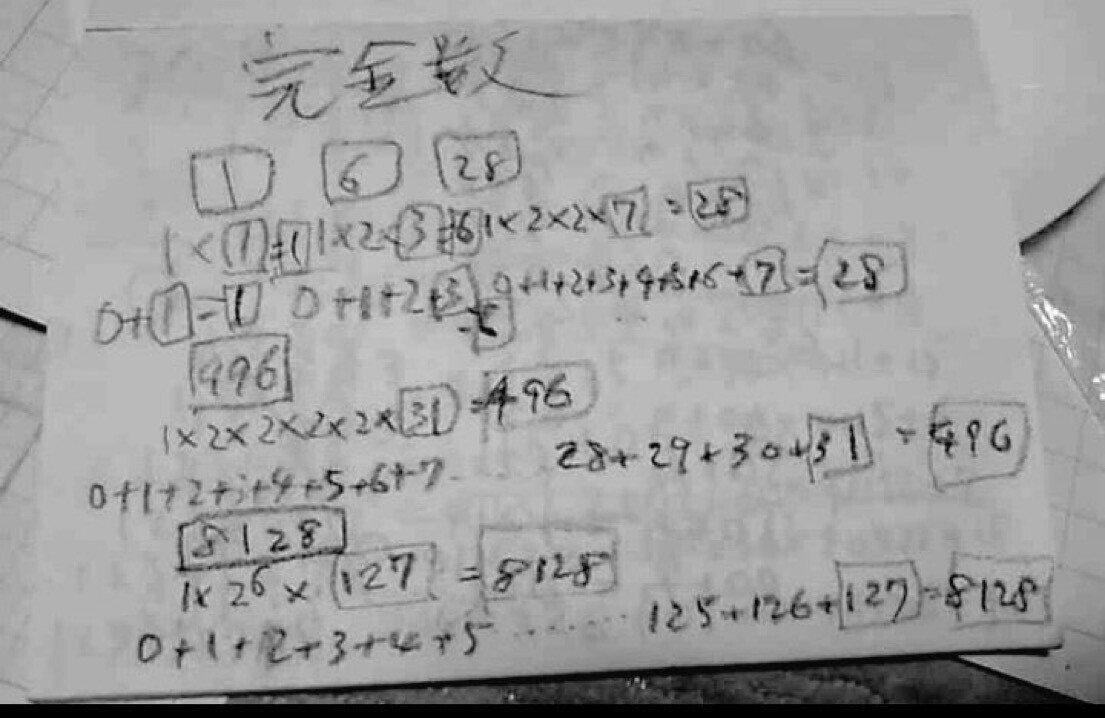 完全数
1 6 28
1×1=1 1×2×3=6 1×2×2×7=28
0+1=1 0+1+2+3=6 0+1+2+3+4+5+6+7=28
496
1×2×2×2×2×31=496
0+1+2+3+4+5+6+7... 28+29+30+31=496
8128
1×2⁶×127=8128
0+1+2+3+4+5........125+126+127=8128